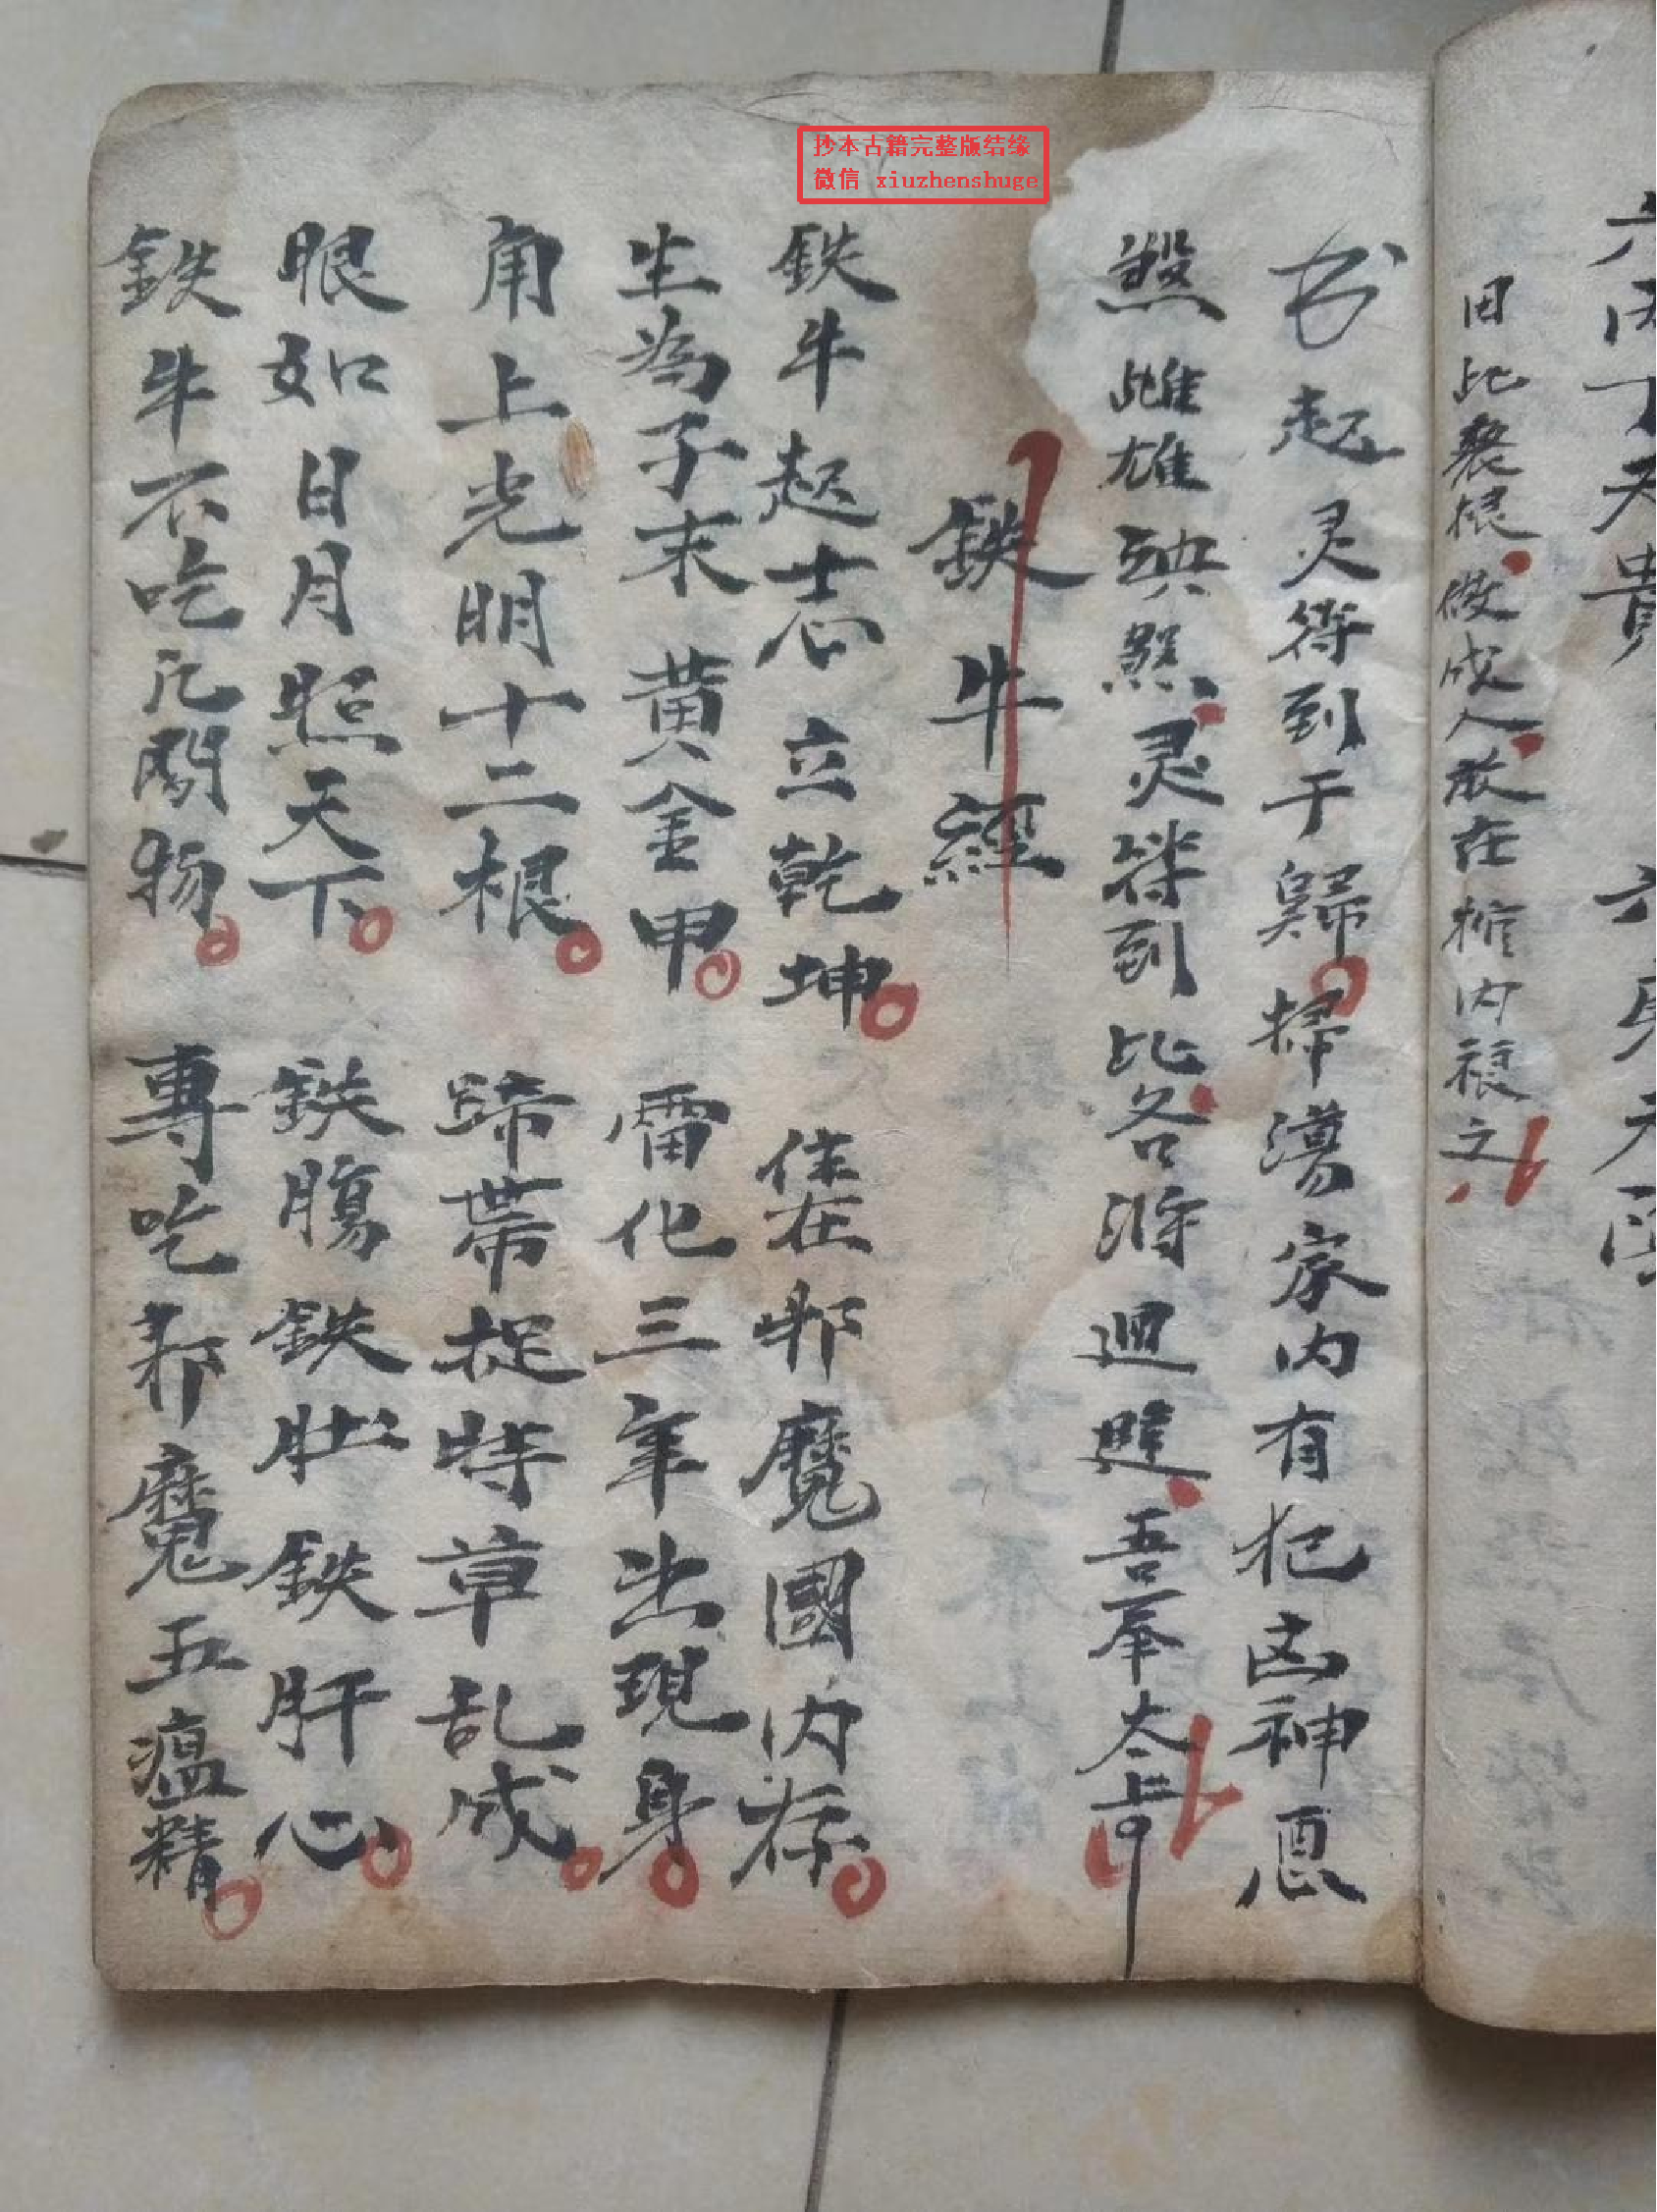 六丙丁天貴 六庚天
田比裂根做成人放在棺内裉之
书起灵符到于歸掃湯家内有犯凶神悪
煞雌雄殃煞灵符到比各消迴避吾奉太上
鉄牛經
鉄牛起志立乾坤 住在邪魔國内存
生為子末黄金甲 雷化三年出現身
角上光明十二根 蹄带捉特草乱成
眼如日月照天下 鉄腸鉄肚鉄肝心
鉄牛不吃凡間物 專吃邪魔五瘟精
抄本古籍完整版结缘
微信 xiuzhenshuge